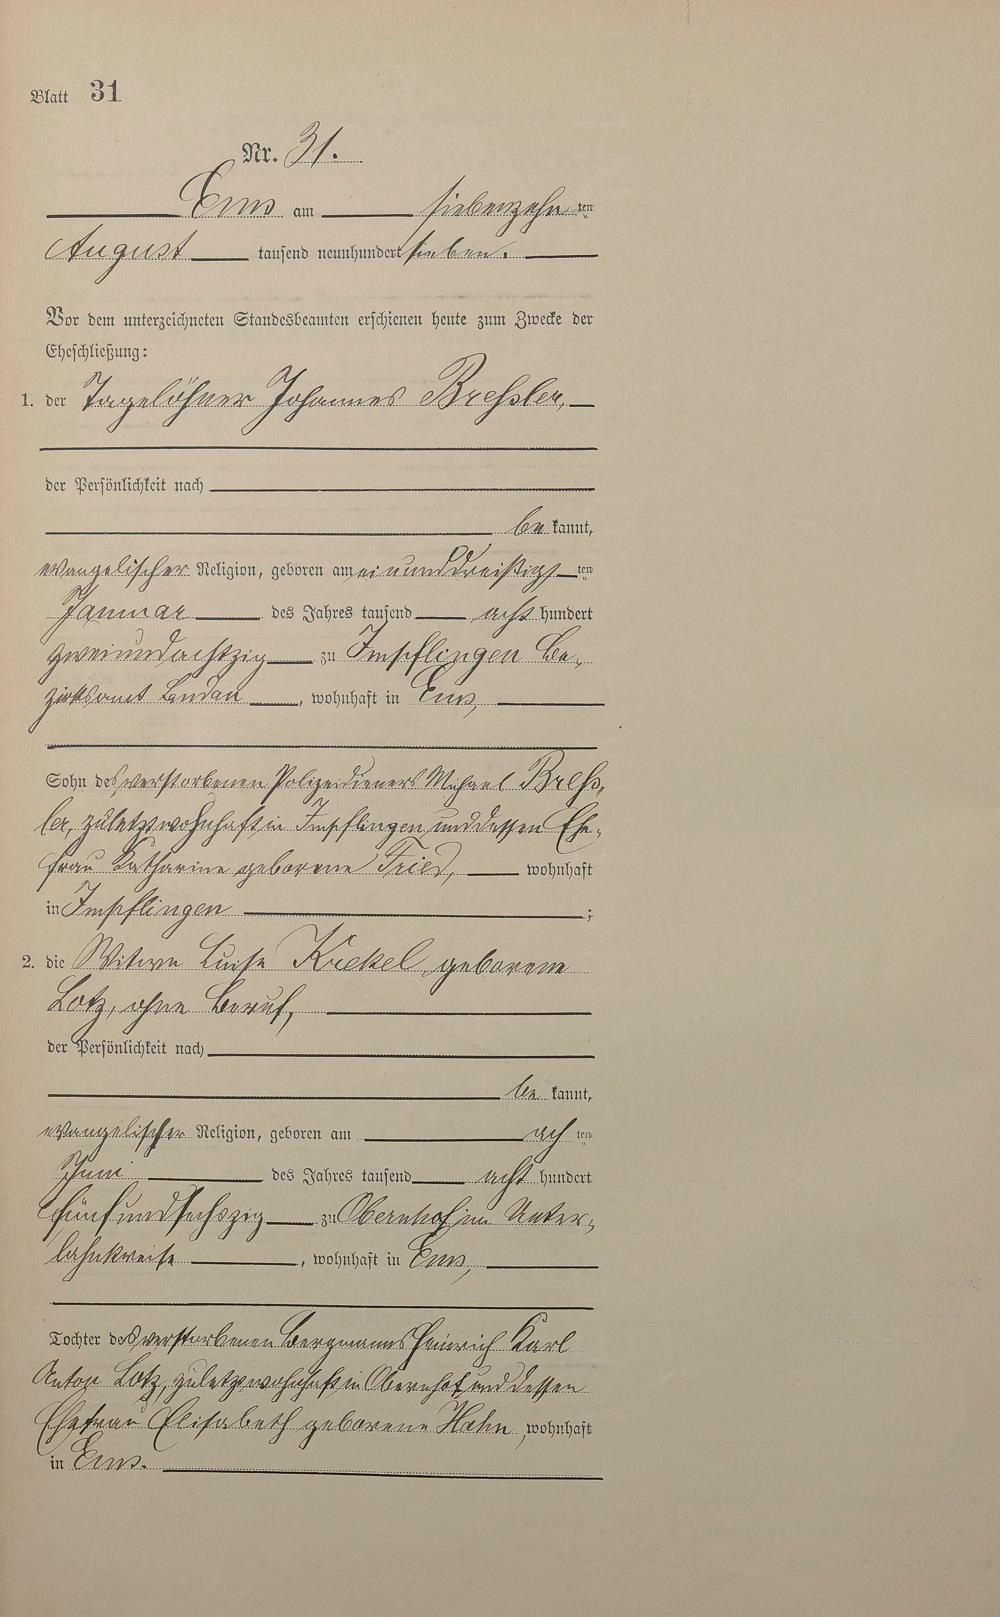 Blatt 31
Nr. 31.
Ems am siebenzehn ten
August tausend neunhundert sieben.
Vor dem unterzeichneten Standesbeamten erschienen heute zum Zwecke der
Eheschließung:
1. der Tagelöhner Johannes Breßler,
der Persönlichkeit nach
be kannt,
evangelischer Religion, geboren am einunddreißigs ten
Januar des Jahres tausend acht hundert
zweiundachtzig zu Impflingen Be-
zirksamt Landau, wohnhaft in Ems,
Sohn des verstorbenen Polizeidieners Michael Breß-
ler, zuletzt wohnhaft in Impflingen, und dessen Ehe-
frau Katharine geborene Fried, wohnhaft
in Impflingen ;
2. die Witwe Luise Krekel geborene
Lotz, ohne Beruf,
der Persönlichkeit nach
be kannt,
evangelischer Religion, geboren am ach ten
Juni des Jahres tausend acht hundert
fünfundsechszig zu Obernhof im Unter-
lahnkreise, wohnhaft in Ems,
Tochter des verstorbenen Bergmanns Heinrich Karl
Anton Lotz, zuletzt wohnhaft in Obernhof, und dessen
Ehefrau Elisabeth geborene Hahn, wohnhaft
in Ems.